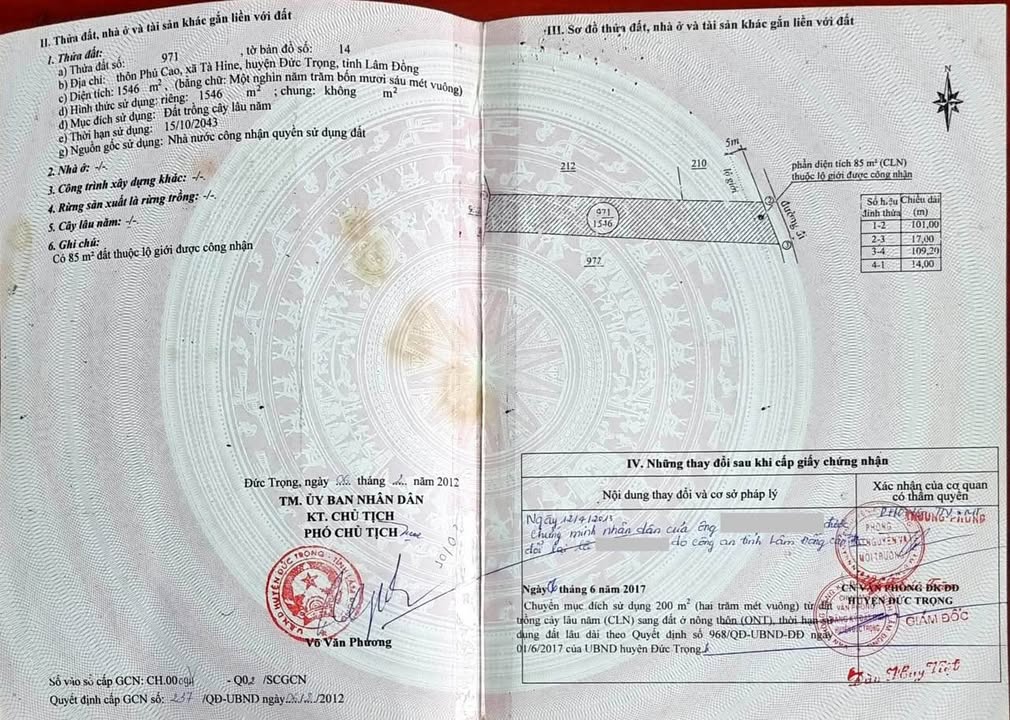 II. Thửa đất, nhà ở và tài sản khác gắn liền với đất
1. Thửa đất:
a) Thửa đất số: 971 , tờ bản đồ số: 14
b) Địa chỉ: thôn Phú Cao, xã Tà Hine, huyện Đức Trọng, tỉnh Lâm Đồng
c) Diện tích: 1546 m², (bằng chữ: Một nghìn năm trăm bốn mươi sáu mét vuông)
d) Hình thức sử dụng: riêng: 1546 m² ; chung: không m²
đ) Mục đích sử dụng: Đất trồng cây lâu năm
e) Thời hạn sử dụng: 15/10/2043
g) Nguồn gốc sử dụng: Nhà nước công nhận quyền sử dụng đất
2. Nhà ở: -/-
3. Công trình xây dựng khác: -/-
4. Rừng sản xuất là rừng trồng: -/-
5. Cây lâu năm: -/-
6. Ghi chú:
Có 85 m² đất thuộc lộ giới được công nhận
Đức Trọng, ngày tháng năm 2012
TM. ỦY BAN NHÂN DÂN
KT. CHỦ TỊCH
PHÓ CHỦ TỊCH
Võ Văn Phương
Số vào sổ cấp GCN: CH.00 - Q02 /SCGCN
Quyết định cấp GCN số: 237 /QĐ-UBND ngày /2012
III. Sơ đồ thửa đất, nhà ở và tài sản khác gắn liền với đất
N
5m
lộ giới
212
210
phần diện tích 85 m² (CLN)
thuộc lộ giới được công nhận
971
1546
972
2
3
đường đi
Số hiệu đỉnh thửa Chiều dài (m)
1-2 101,00
2-3 17,00
3-4 109,20
4-1 14,00
IV. Những thay đổi sau khi cấp giấy chứng nhận
Nội dung thay đổi và cơ sở pháp lý
Xác nhận của cơ quan
có thẩm quyền
Ngày
chứng minh nhân dân của ông được
đổi lại là do công an tỉnh Lâm Đồng cấp
TRƯỞNG PHÒNG
PHÒNG
TÀI NGUYÊN VÀ
MÔI TRƯỜNG
Ngày tháng 6 năm 2017
Chuyển mục đích sử dụng 200 m² (hai trăm mét vuông) từ đất
trồng cây lâu năm (CLN) sang đất ở nông thôn (ONT), thời hạn sử
dụng đất lâu dài theo Quyết định số 968/QĐ-UBND-ĐĐ ngày
01/6/2017 của UBND huyện Đức Trọng
CN VĂN PHÒNG ĐKĐĐ
HUYỆN ĐỨC TRỌNG
GIÁM ĐỐC
Huy Việt